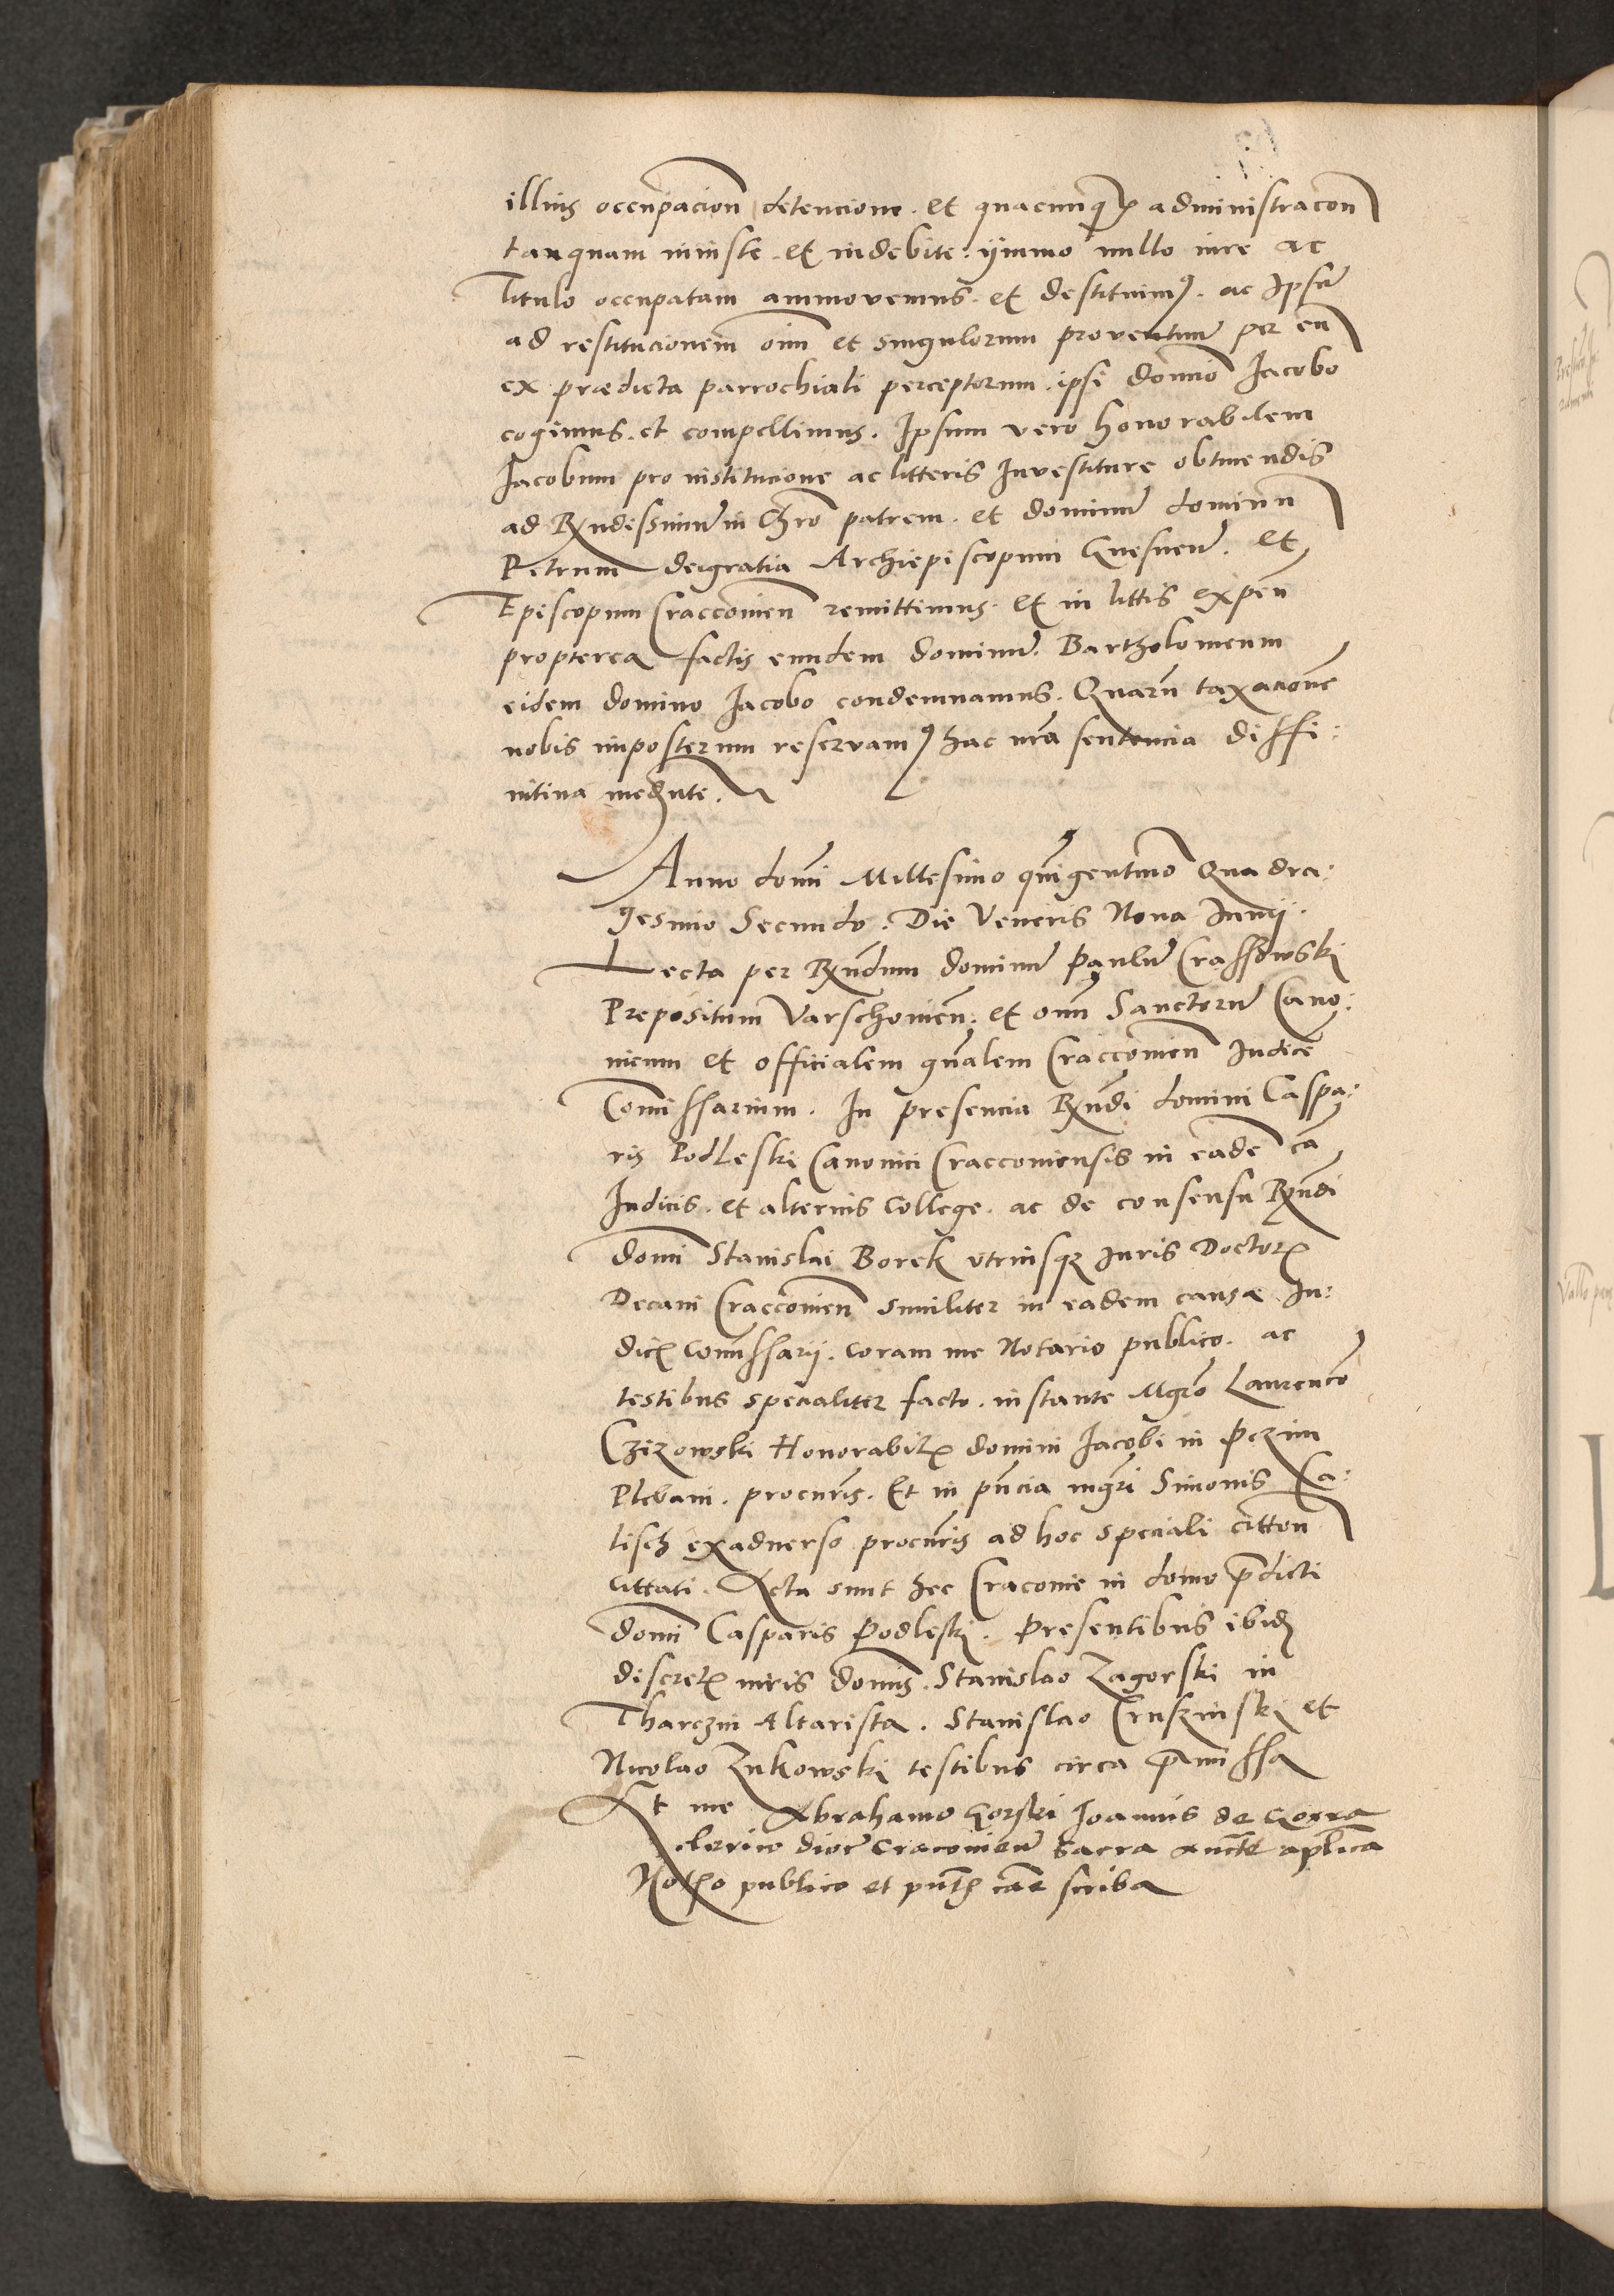 illius occupacion detencione. et quacunq administracon
tanquam iniuste. et indebite: ymmo nullo iure ac
Titulo occupatam ammovemus. et destituim9. ac Ipsū
ad restitucionem oīm et singulorum proventuū per eū
ex prædicta parrochiali perceptorum. ipsi domīo Iacobo
cogimus. et compellimus. Ipsum vero honorabilem
Iacobum pro institucione ac litteris Investiture obtinendis
ad Rndissimū in Chro patrem. et dominū dominū
Petrum dei gratia Archiepiscopum Gnesneñ. et
Episcopum Cracovieñ remittimus. et in littis expeñ
propterea factis eundem dominū. Bartholomeum
eidem domino Iacobo condemnamus. Quarū taxacionē
nobis imposterum reservam9 hac nrā sentencia diffi:
nitiva mediante.
Anno domī Millesimo quīgentīmo Quadra:
gesimo Secundo. Die Veneris Nona Iunij.
Lecta per Rndum dominū Paulū Crassowski
Prepositum Varschovieñ. et oīm Sanctorū Cano:
nicum et officialem gñalem Cracovieñ Iudicē
Comissarium. In presencia Rndi domini Caspa:
ris Podleski Canonici Cracoviensis in eadē cā
Iudicis. et alterius College. ac de consensu Rndi
domī Stanislai Borek vtriusq Iuris Doctor
Decani Cracovieñ similiter in eadem causæ Iu:
dic Comissarij. coram me Notario publico. ac
testibus specialiter facto. instante Mgro Laurencō
Czizowski Honorabil domini Iacobi in Pczim
Plebani. procuris. Et in pñcia mgri Simonis Ca:
lisch exadverso procuris ad hoc speciali cittoñ
cittati. Acta sunt hec Cracovie in domo pdicti
domī Casparis Podleski. Presentibus ibid
discret viris domis. Stanislao Zagorski in
Tharczin Altarista. Stanislao Cruszinski et
Nicolao Zukowski testibus circa pmissa
Et me Abrahamo Gorski Ioannis de Gorra
clerico dioc Cracovieñ Sacra aucte aplica
Notrio publico et pntis cāe scriba